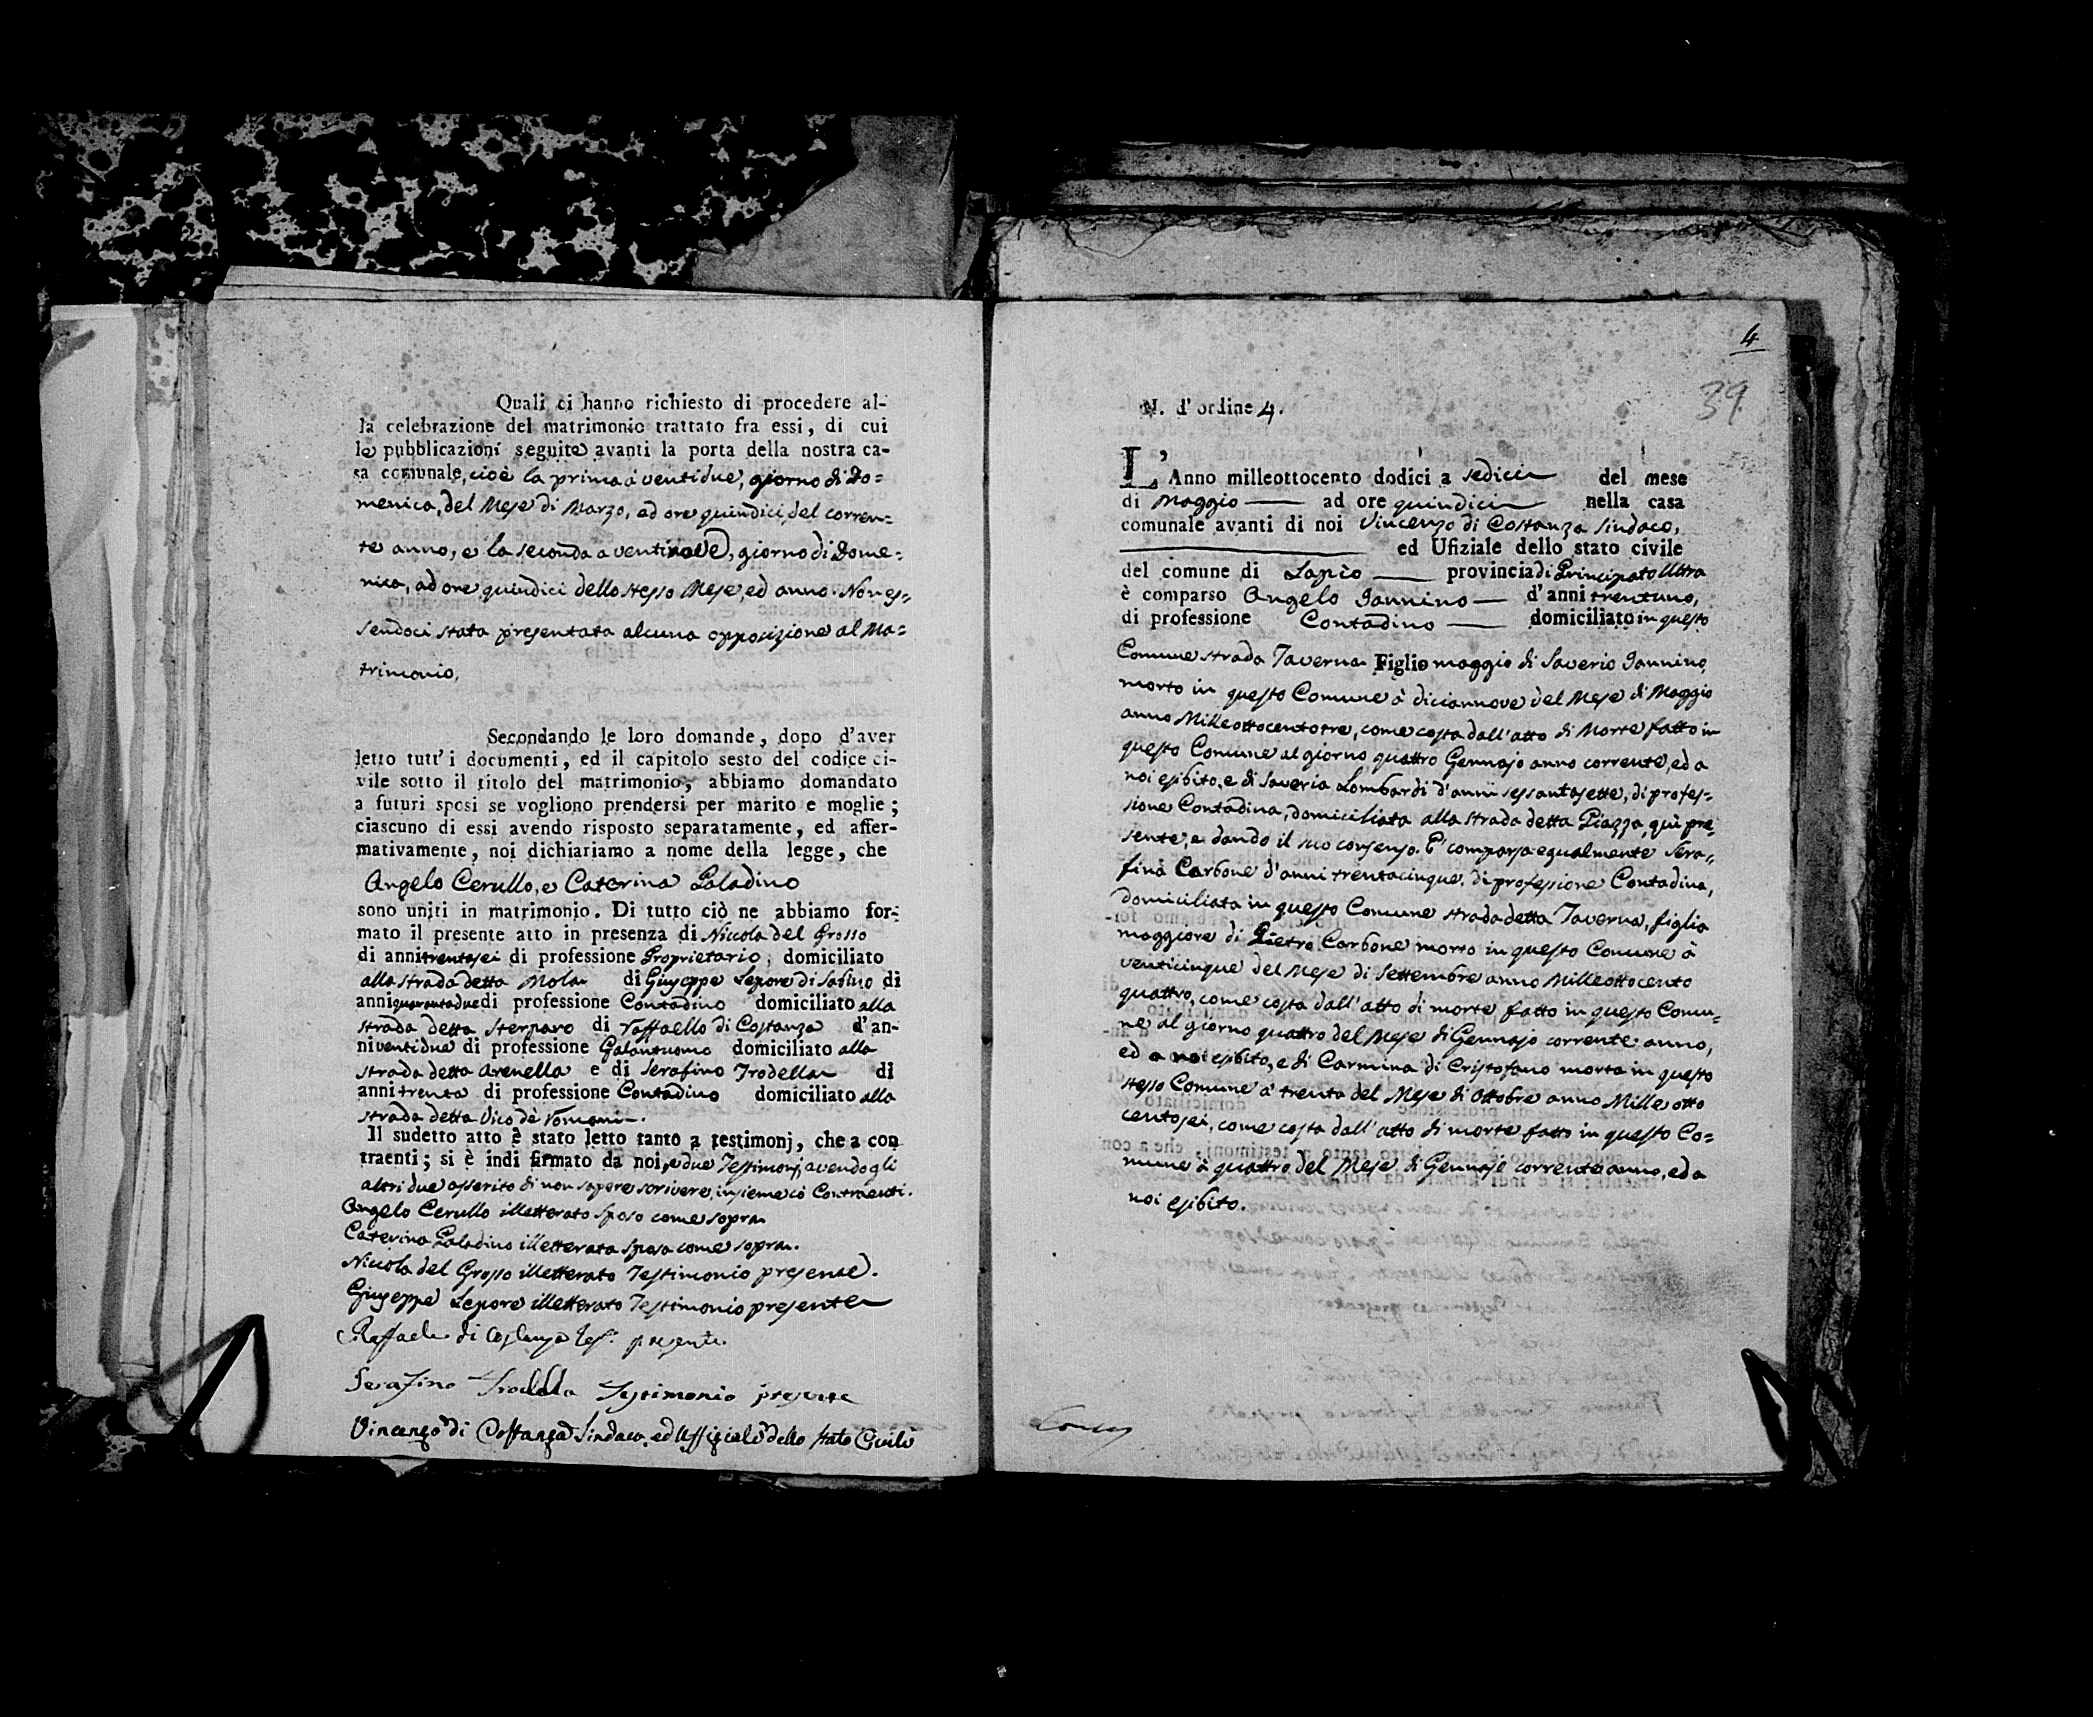 Quali ci hanno richiesto di procedere al-
la celebrazione del matrimonio trattato fra essi, di cui
le pubblicazioni seguite avanti la porta della nostra ca-
sa comunale, cioè la prima à ventidue, giorno di Do=
menica, del Mese di Marzo, ad ore quindici, del corren=
te anno, e la seconda a ventinove, giorno di Dome=
nica, ad ore quindici dello stesso Mese, ed anno. Non es=
sendoci stata presentata alcuna opposizione al Ma=
trimonio,
Secondando le loro domande, dopo d'aver
letto tutt' i documenti, ed il capitolo sesto del codice ci-
vile sotto il titolo del matrimonio, abbiamo domandato
a futuri sposi se vogliono prendersi per marito e moglie;
ciascuno di essi avendo risposto separatamente, ed affer-
mativamente, noi dichiariamo a nome della legge, che
Angelo Cerullo, e Caterina Paladino
sono uniti in matrimonio. Di tutto ciò ne abbiamo for-
mato il presente atto in presenza di Niccola del Grosso
di anni trentasei di professione Proprietario, domiciliato
alla strada detta Mola di Giuseppe Lepore di Sabino di
anni quarantadue di professione Contadino domiciliato alla
strada detta Sterparo di Raffaello di Costanza d'an-
ni ventidue di professione Galantuomo domiciliato alla
strada detta Arenella e di Serafino Trodella di
anni trenta di professione Contadino domiciliato alla
strada detta Vico dè Romani.
Il sudetto atto è stato letto tanto a testimonj, che a con
traenti; si è indi firmato da noi, e due Testimonj, avendo gli
altri due asserito di non sapere scrivere, insieme có Contraenti.
Angelo Cerullo illetterato sposo come sopra
Caterina Paladino illetterata sposa come sopra.
Niccola del Grosso illetterato Testimonio presente.
Giuseppe Lepore illetterato Testimonio presente
Raffaele di Costanza Tes. presente.
Serafino Trodella Testimonio presente
Vincenzo di Costanza Sindaco, ed Uffiziale dello stato Civile
4
39
N. d'ordine 4.
L'Anno milleottocento dodici a sedici del mese
di Maggio ad ore quindici nella casa
comunale avanti di noi Vincenzo di Costanza Sindaco,
ed Ufiziale dello stato civile
del comune di Lapio provincia di Principato Ultra
è comparso Angelo Iannino d'anni trentuno,
di professione Contadino domiciliato in questo
Comune strada Taverna Figlio maggio di Saverio Iannino
morto in questo Comune à diciannove del Mese di Maggio
anno Milleottocentotre, come costa dall'atto di Morte fatto in
questo Comune al giorno quattro Gennajo anno corrente, ed a
noi esibito, e di Saveria Lombardi d'anni sessantasette, di profes=
sione Contadina, domiciliata alla strada detta Piazza, quì pre=
sente, e dando il suo consenso. E' comparsa egualmente Sera=
fina Carbone d'anni trentacinque, di professione Contadina,
domiciliata in questo Comune strada detta Taverna, figlia
maggiore di Pietro Carbone morto in questo Comune à
venticinque del Mese di Settembre anno Milleottocento
quattro, come costa dall'atto di morte fatto in questo Comu=
ne al giorno quattro del Mese di Gennajo corrente anno,
ed a noi esibito, e di Carmina di Cristofano morta in questo
stesso Comune à trenta del Mese di Ottobre anno Mille otto
centosei, come costa dall'atto di morte fatto in questo Co=
mune à quattro del Mese di Gennajo corrente anno, ed a
noi esibito.